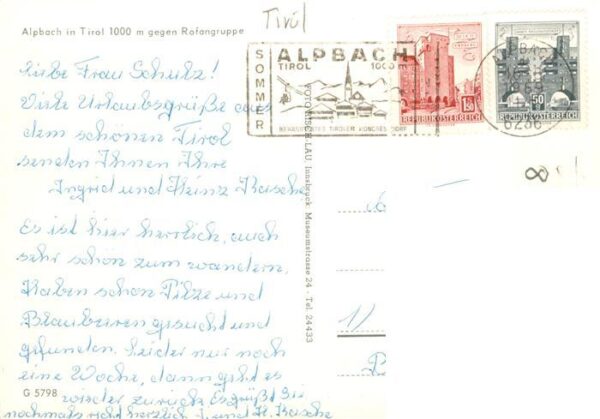 Tirol
Alpbach in Tirol 1000 m gegen Rofangruppe
SOMMER
ALPBACH
TIROL 1000 m
BEKANNTESTES TIROLER KONGRESSDORF
1.50
REPUBLIK ÖSTERREICH
50
REPUBLIK ÖSTERREICH
6236
8
Liebe Frau Schulz!
Viele Urlaubsgrüße aus
dem schönen Tirol
senden Ihnen Ihre
Ingrid und Heinz Basche
Es ist hier herrlich, auch
sehr schön zum wandern.
Haben schon Pilze und
Blaubeeren gesucht und
gefunden. Leider nur noch
eine Woche, dann geht es
wieder zurück. Es grüßt Sie
nochmals recht herzlich I. und H. Basche
G 5798
Innsbruck, Museumstrasse 24 - Tel. 24433
1)